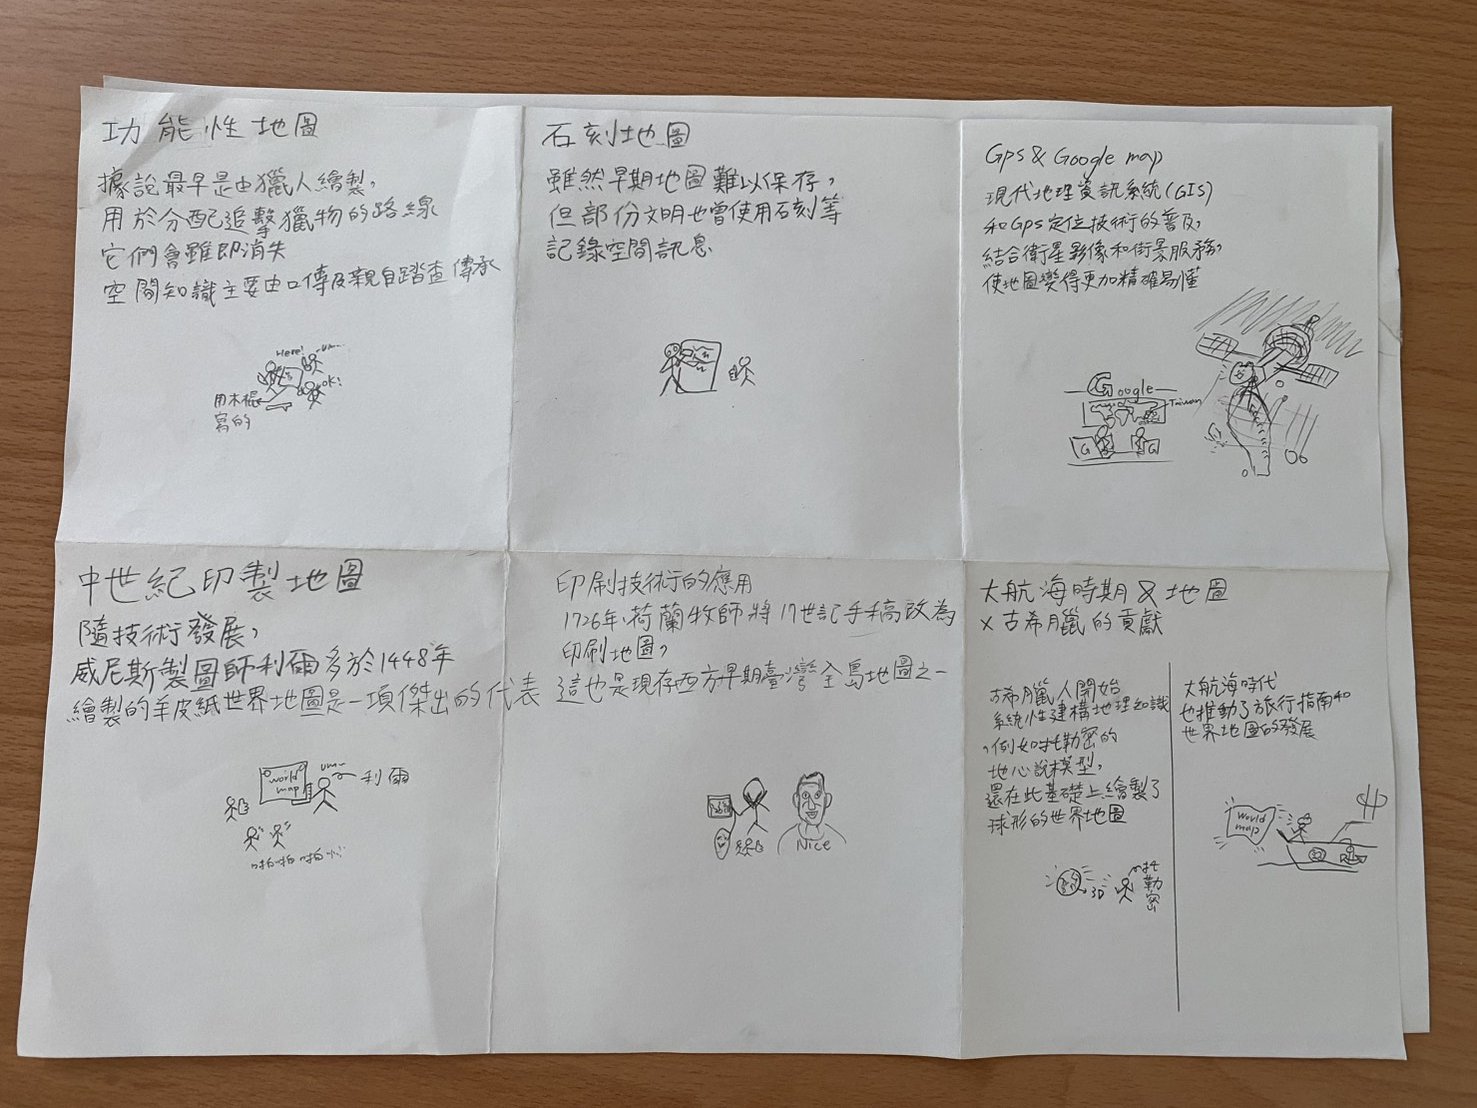 功能性地圖
據說最早是由獵人繪製,
用於分配追擊獵物的路線
它們會雖即消失
空間知識主要由口傳及親自踏查傳承
Here!
um...
OK!
用木棍
寫的
石刻地圖
雖然早期地圖難以保存,
但部份文明也曾使用石刻等
記錄空間訊息
Gps & Google map
現代地理資訊系統(GIS)
和Gps定位技術的普及,
結合衛星影像和街景服務,
使地圖變得更加精確易懂
Google
Taiwan
G
G
中世紀印製地圖
隨技術發展,
威尼斯製圖師利爾多於1448年
繪製的羊皮紙世界地圖是一項傑出的代表
world
map
um...
利爾
啪啪啪
印刷技術的應用
1726年,荷蘭牧師將17世記手稿改為
印刷地圖,
這也是現存西方早期臺灣全島地圖之一
Nice
大航海時期&地圖
x古希臘的貢獻
古希臘人開始
系統性建構地理知識
,例如托勒密的
地心說模型,
還在此基礎上繪製了
球形的世界地圖
3D
托
勒
密
大航海時代
也推動了旅行指南和
世界地圖的發展
World
map